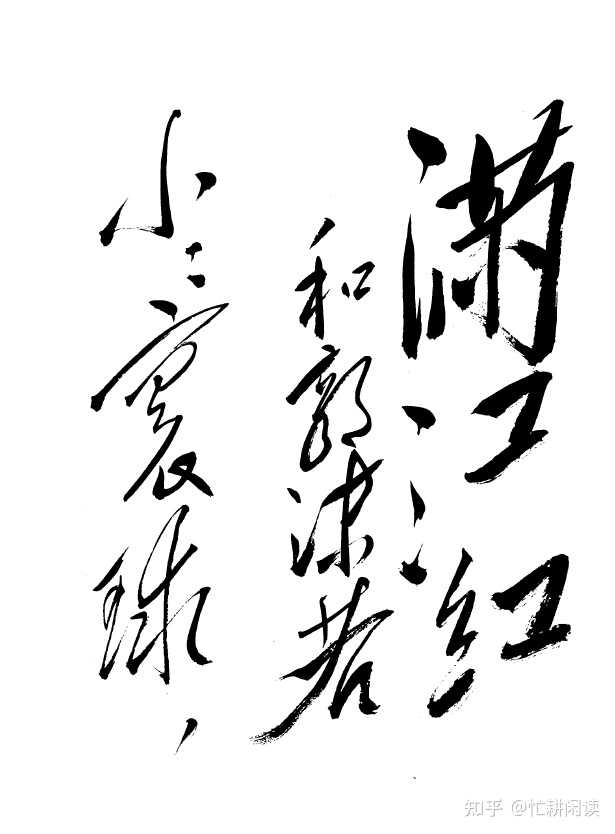 满江红
和郭沫若
小小寰球，
知乎 @忙耕闲读